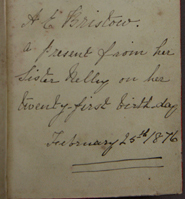 A. E. Bristow.
a present from her
Sister Nelly on her
twenty first birth day
February 25th 1876